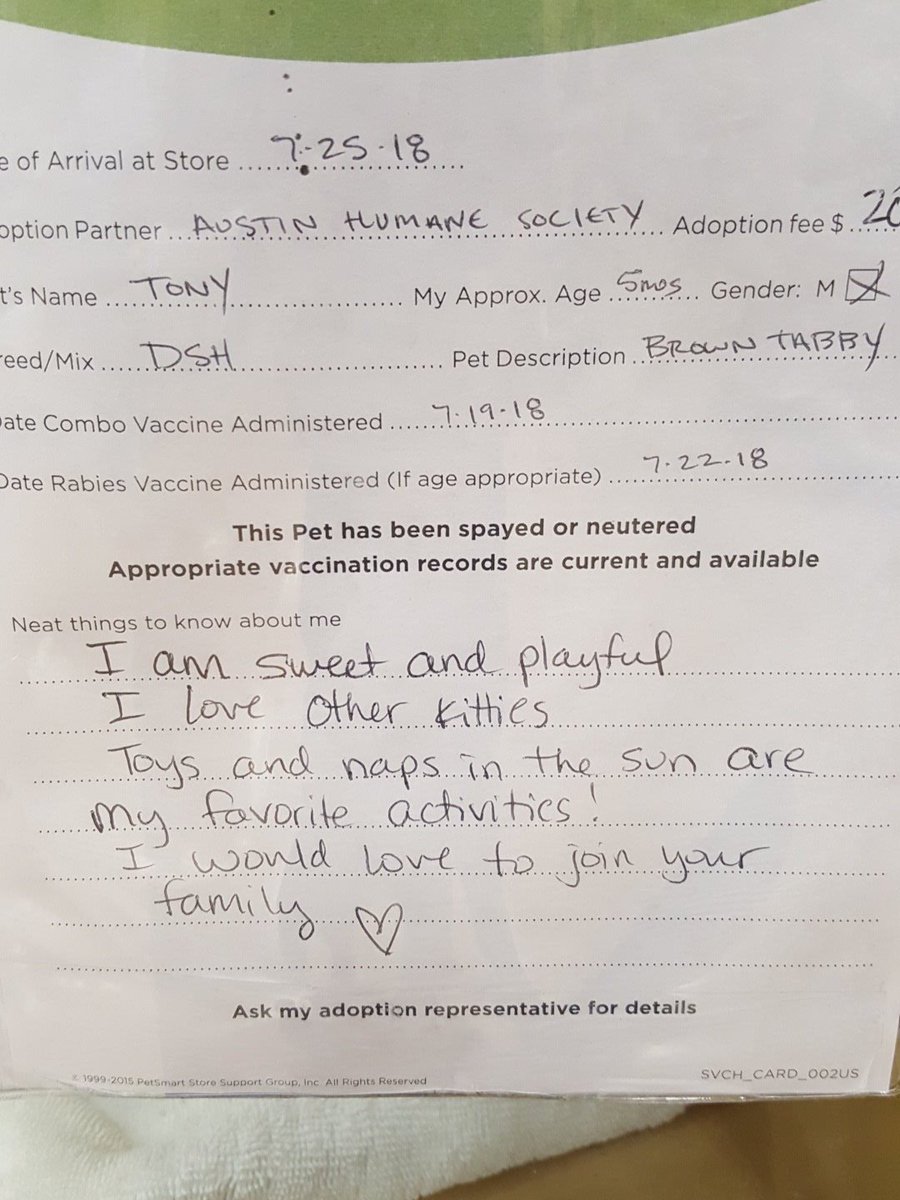 e of Arrival at Store 7-25-18
option Partner AUSTIN HUMANE SOCIETY Adoption fee $ 20
t's Name TONY My Approx. Age 5mos Gender: M
reed/Mix DSH Pet Description BROWN TABBY
Date Combo Vaccine Administered 7-19-18
Date Rabies Vaccine Administered (If age appropriate) 7-22-18
This Pet has been spayed or neutered
Appropriate vaccination records are current and available
Neat things to know about me
I am sweet and playful
I love other kitties
Toys and naps in the sun are
my favorite activities!
I would love to join your
family
Ask my adoption representative for details
© 1999-2015 PetSmart Store Support Group, Inc. All Rights Reserved
SVCH_CARD_002US